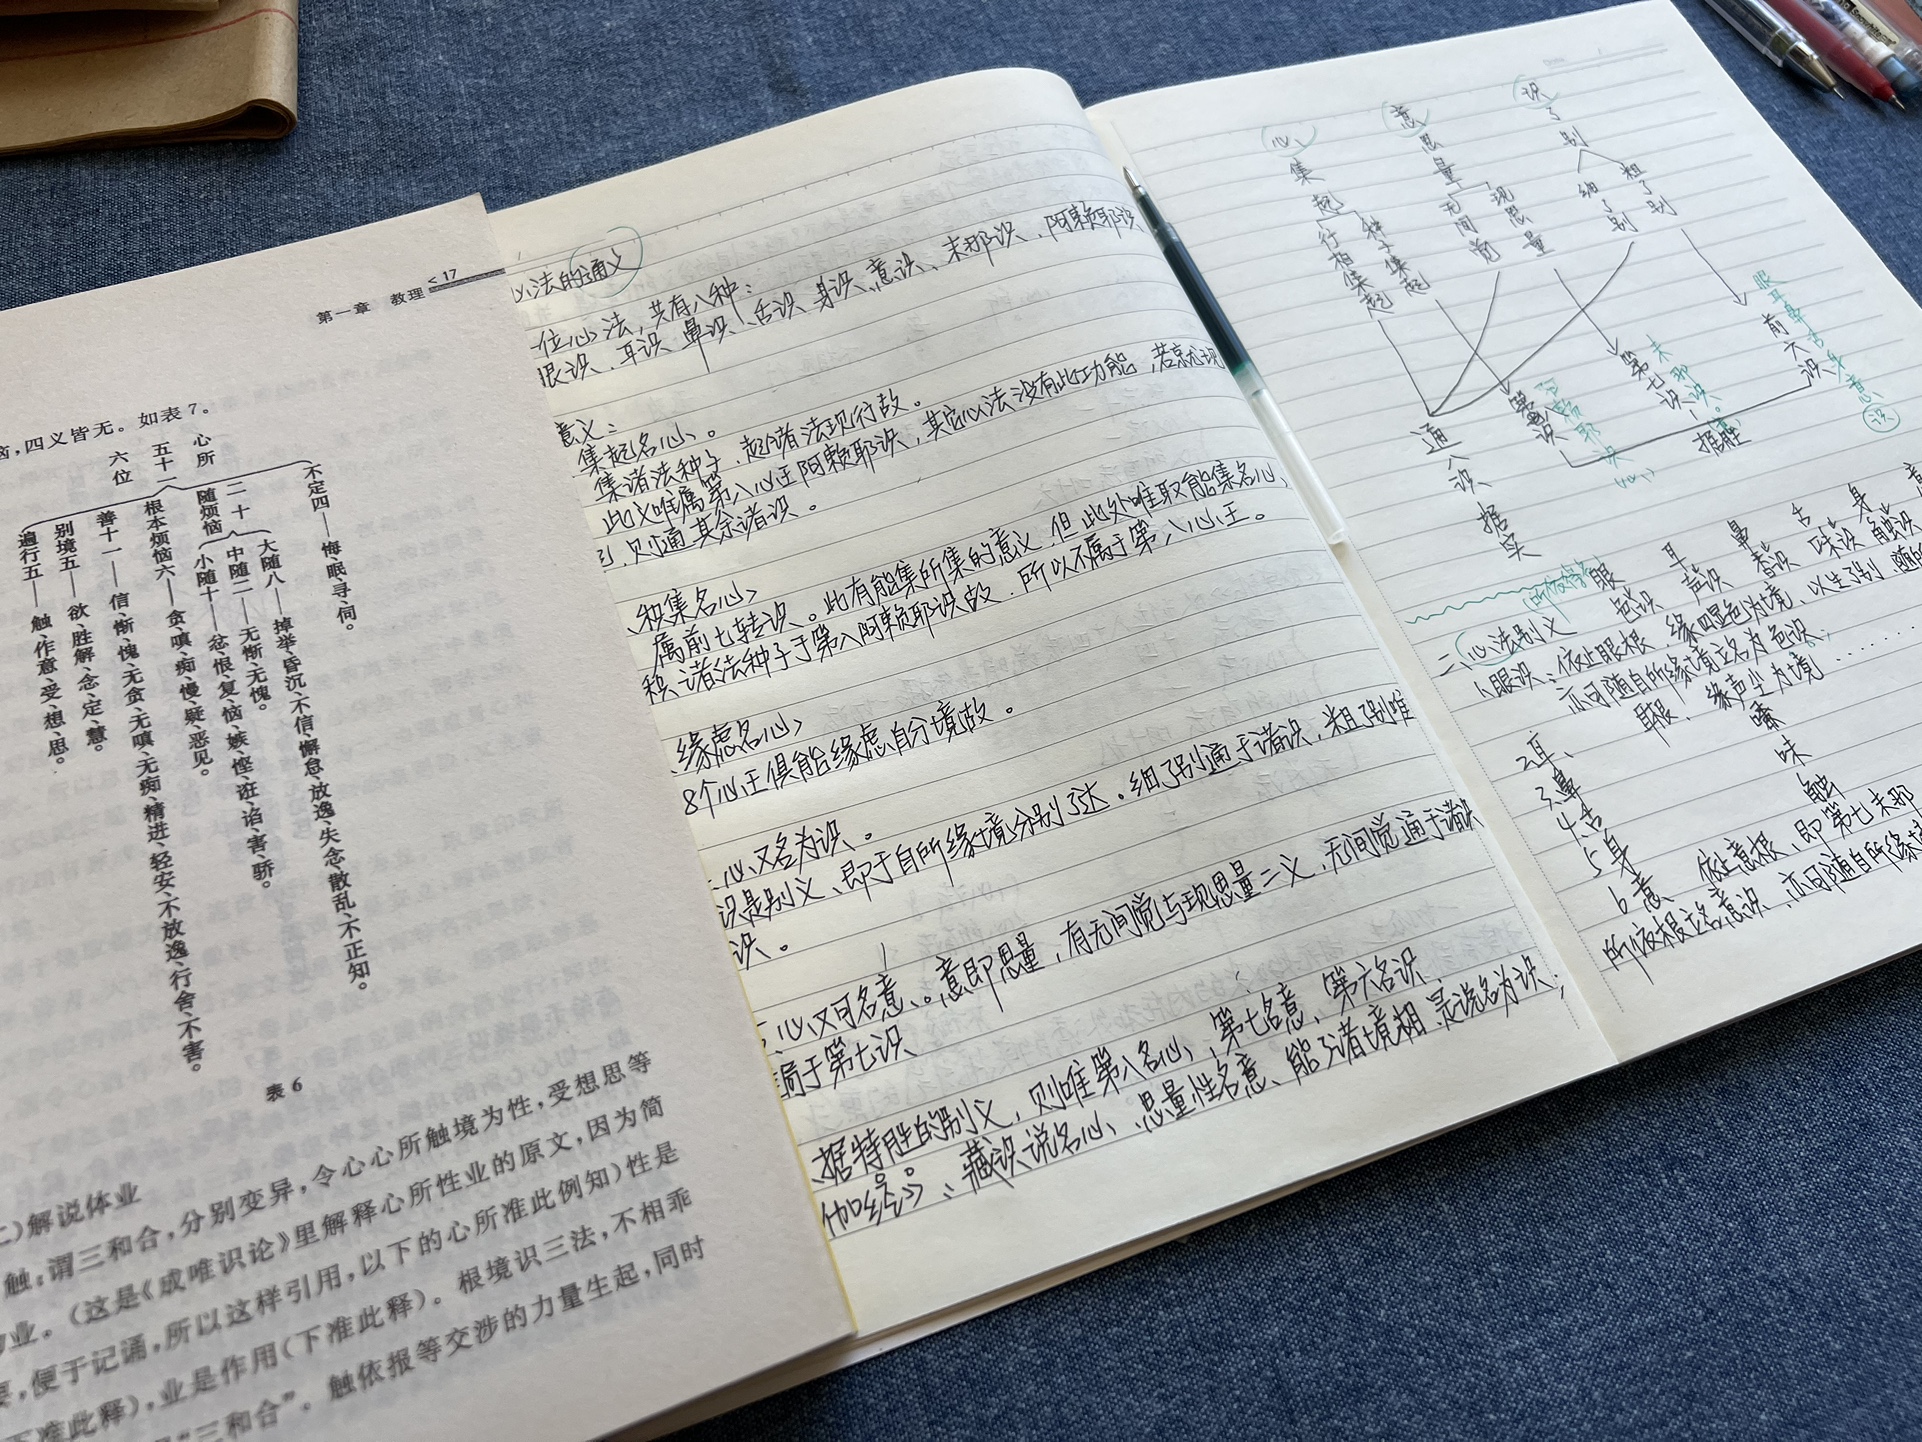 第一章 教理 < 17
,四义皆无。如表7。
心所
五十一
六位
遍行五——触、作意、受、想、思。
别境五——欲、胜解、念、定、慧。
善十一——信、惭、愧、无贪、无嗔、无痴、精进、轻安、不放逸、行舍、不害。
根本烦恼六——贪、嗔、痴、慢、疑、恶见。
二十
随烦恼
小随十——忿、恨、复、恼、嫉、悭、诳、谄、害、骄。
中随二——无惭、无愧。
大随八——掉举、昏沉、不信、懈怠、放逸、失念、散乱、不正知。
不定四——悔、眠、寻、伺。
表6
)解说体业
触:谓三和合,分别变异,令心心所触境为性,受想思等
业。(这是《成唯识论》里解释心所性业的原文,因为简
要,便于记诵,所以这样引用,以下的心所准此例知)性是
下准此释),业是作用(下准此释)。根境识三法,不相乖
“三和合”。触依报等交涉的力量生起,同时
心法的通义
一位心法,共有八种:
眼识、耳识、鼻识、舌识、身识、意识、末那识、阿赖耶识
意义:
集起名心。
集诸法种子、起诸法现行故。
此义唯属第八心王阿赖耶识,其它心法没有此功能,若就现
则通其余诸识。
积集名心
属前七转识。此有能集所集的意义,但此处唯取能集名心、
积诸法种子于第八阿赖耶识故,所以不属于第八心王。
缘虑名心
8个心王俱能缘虑自分境故。
心又名为识。
识是别义,即于自所缘境分别了达。细了别通于诸识,粗了别唯
识。
心又可名意。意即思量,有无间觉与现思量二义,无间觉通于诸识
局于第七识
据特胜的别义,则唯第八名心,第七名意、第六名识
伽经》、藏识说名心、思量性名意、能了诸境相是说名为识;
心
集起
行相集起
种子集起
意
思量
无间觉
现思量
识
了别
细了别
粗了别
通八识 据实
第八识
阿赖耶识(心)
第七识
末那识
前六识
眼耳鼻舌身意识
据胜
所依得名 眼 耳 鼻 舌 身 意
色识 声识 香识 味识 触识
二、心法别义
1、眼识、依止眼根,缘四显色为境、以生了别,随所
亦可随自所缘境立名为色识; ……
2、耳、 耳根、 缘声尘为境
3、鼻 嗅
4、舌 味
5、身 触
6、意 依止意根,即第七末那
所依根立名意识、亦可随自所缘